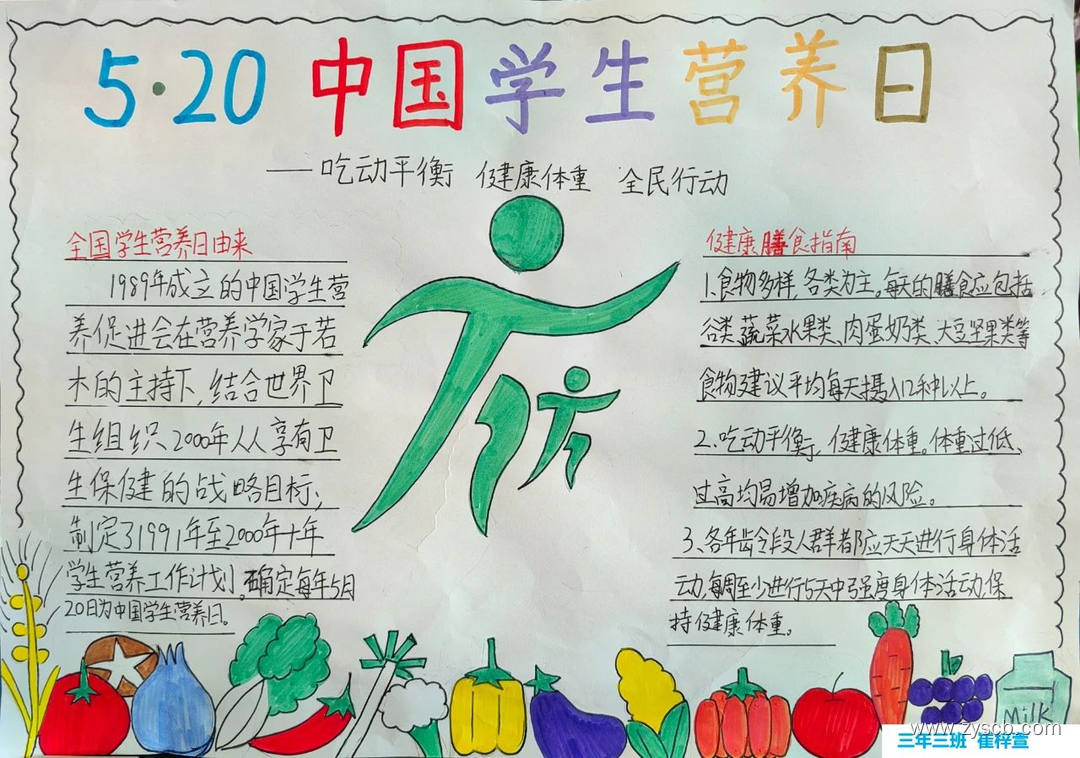 5·20 中国学生营养日
——吃动平衡 健康体重 全民行动
全国学生营养日由来
1989年成立的中国学生营
养促进会在营养学家于若
木的主持下,结合世界卫
生组织2000年人人享有卫
生保健的战略目标;
制定了1991年至2000年十年
学生营养工作计划。确定每年5月
20日为中国学生营养日。
健康膳食指南
1.食物多样,各类为主。每天的膳食应包括
谷类、蔬菜水果类、肉蛋奶类、大豆坚果类等
食物建议平均每天摄入12种以上。
2.吃动平衡,健康体重。体重过低、
过高均易增加疾病的风险。
3、各年龄段人群都应天天进行身体活
动,每周至少进行5天中弓强度身体活动,保
持健康体重。
Milk
www.zyscb.com
三年三班 崔梓萱